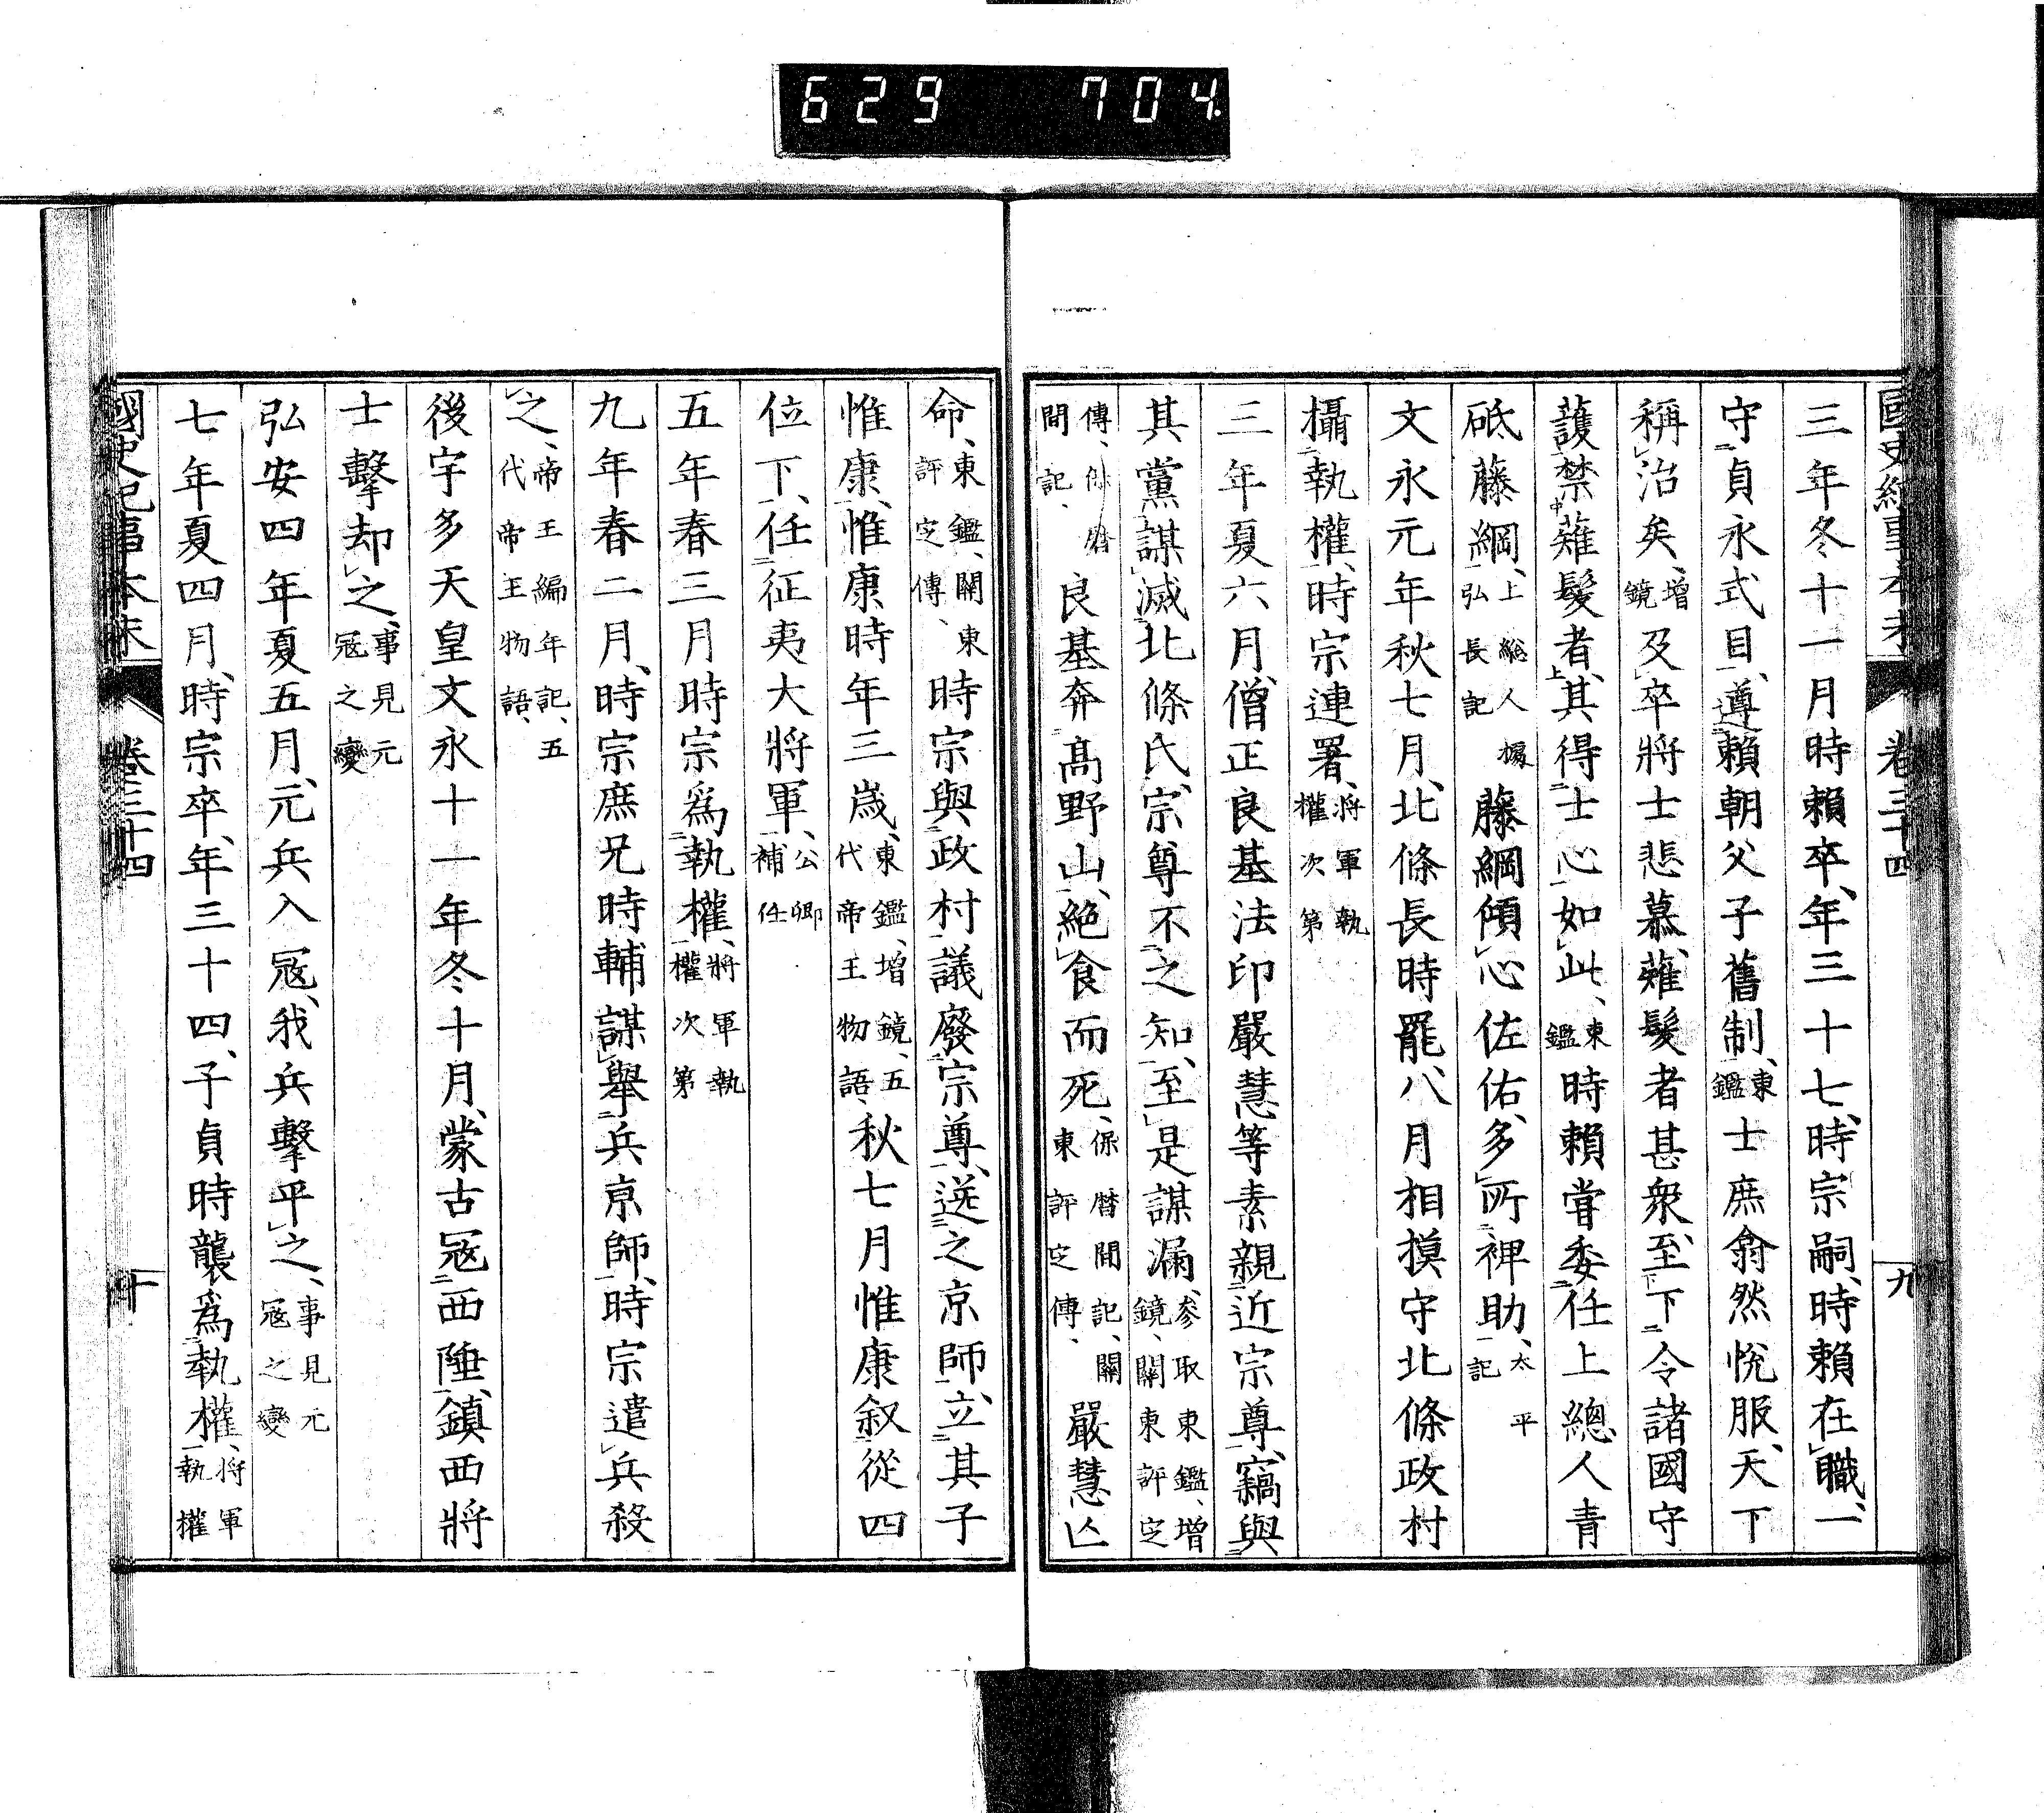 629 704
國史紀事本末 卷三十四 九
三年冬十一月時賴卒、年三十七、時宗嗣、時賴在職、一
守貞永式目、遵賴朝父子舊制、東鑑士庶翕然悅服、天下
稱治矣、增鏡及卒將士悲慕、薙髮者甚衆、至下令諸國守
護禁薙髮者、其得士心如此、東鑑時賴嘗委任上總人青
砥藤綱、上總人據弘長記藤綱傾心佐佑、多所裨助、太平記
文永元年秋七月、北條長時罷、八月相摸守北條政村
攝執權、時宗連署、將軍執權次第
三年夏六月、僧正良基法印嚴慧等素親近宗尊、竊與
其黨謀滅北條氏、宗尊不之知、至是謀漏、參取東鑑、增鏡、關東評定
傳、保曆間記、良基奔高野山、絕食而死、保曆間記、關東評定傳、嚴慧亾
命、東鑑、關東評定傳、時宗與政村議廢宗尊、送之京師、立其子
惟康、惟康時年三歲、東鑑、增鏡、五代帝王物語、秋七月惟康叙從四
位下、任征夷大將軍、公卿補任
五年春三月時宗爲執權、將軍執權次第
九年春二月、時宗庶兄時輔謀舉兵京師、時宗遣兵殺
之、帝王編年記、五代帝王物語、
後宇多天皇文永十一年冬十月、蒙古寇西陲、鎮西將
士擊却之、事見元寇之變
弘安四年夏五月、元兵入寇、我兵擊平之、事見元寇之變
七年夏四月、時宗卒、年三十四、子貞時襲爲執權、將軍執權
國史紀事本末 卷三十四 十